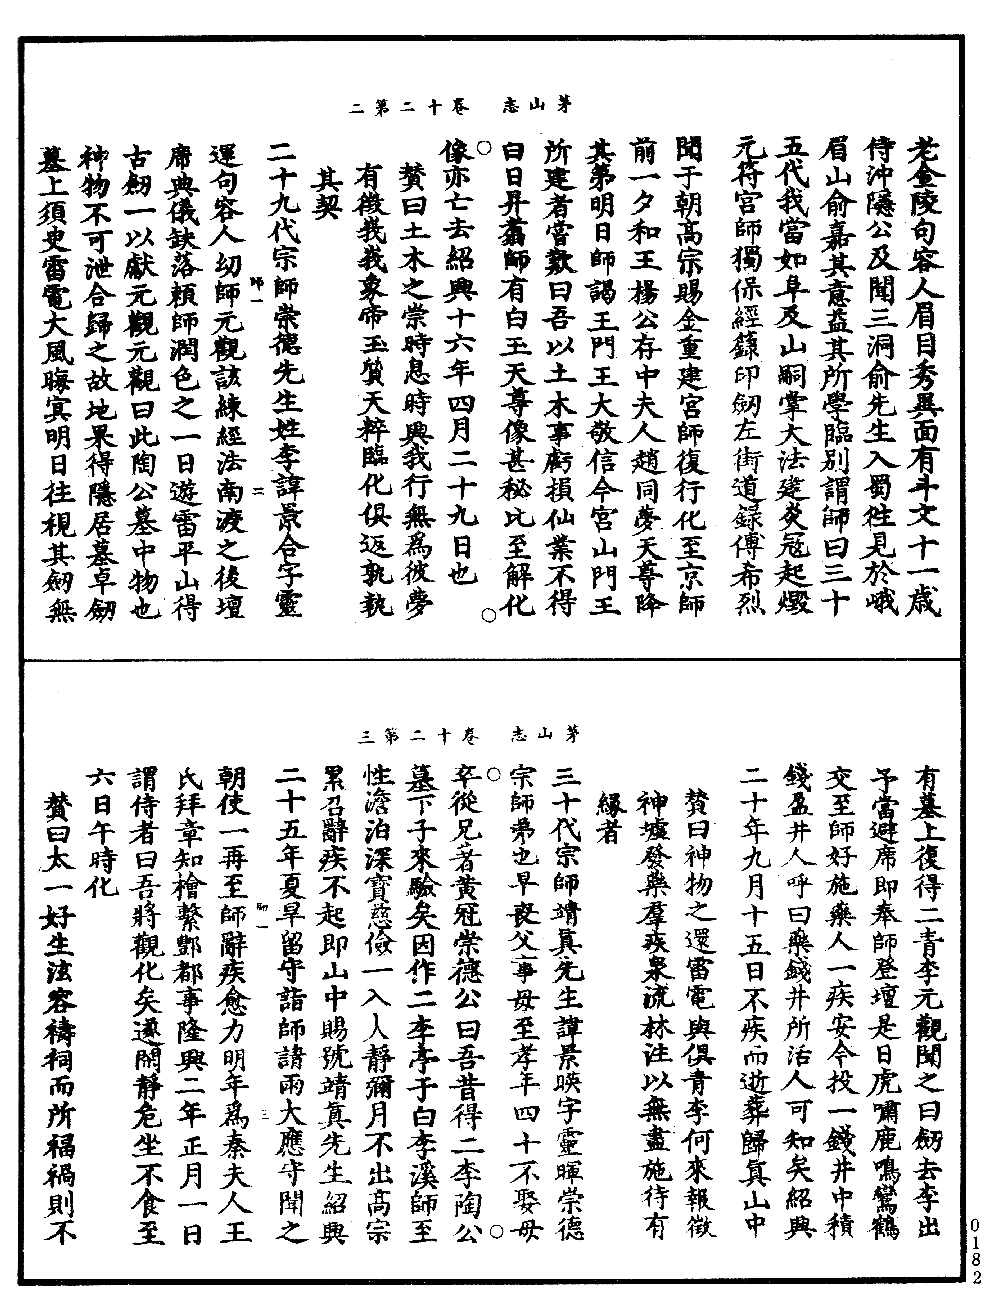 茅山志　卷十二第二
老金陵句容人眉目秀異面有斗文十一歲
侍沖隱公及聞三洞俞先生入蜀徃見於峨
眉山俞嘉其意益其所學臨別謂師曰三十
五代我當如阜及山嗣掌大法建炎冦起燬
元符宮師獨保經籙印劒左街道録傅希烈
聞于朝高宗賜金重建宮師復行化至京師
前一夕和王楊公存中夫人趙同夢天尊降
其第明日師謁王門王大敬信今宮山門王
所建者嘗歎曰吾以土木事虧損仙業不得
白日昇舊師有白玉天尊像甚秘比至解化
像亦亡去紹興十六年四月二十九日也
贊曰土木之崇時息時興我行無為彼夢
有徵我我象帝玉質天粹臨化俱返孰執
其契
二十九代宗師崇德先生姓李諱景合字靈
運句容人幼師元觀該練經法南渡之後壇
席典儀缺落頼師潤色之一日遊雷平山得
古劒一以獻元觀元觀曰此陶公墓中物也
神物不可泄合歸之故地果得隱居墓卓劒
墓上須臾雷電大風晦冥明日往視其劒無
茅山志　卷十二第三
有墓上復得二青李元觀聞之曰劒去李出
予當避席即奉師登壇是日虎嘯鹿鳴鸞鶴
交至師好施藥人一疾安令投一錢井中積
錢盈井人呼曰藥錢井所活人可知矣紹興
二十年九月十五日不疾而逝葬歸真山中
贊曰神物之還雷電與俱青李何來報徵
神墟發藥羣疾衆流林注以無盡施待有
縁者
三十代宗師靖真先生諱景暎字靈暉崇德
宗師弟也早喪父事母至孝年四十不娶母
卒從兄著黃冠崇德公曰吾昔得二李陶公
墓下子來驗矣因作二李亭于白李溪師至
性澹泊深寳慈儉一入人靜彌月不出高宗
累召辭疾不起即山中賜號靖真先生紹興
二十五年夏旱留守詣師請雨大應守聞之
朝使一再至師辭疾愈力明年為秦夫人王
氏拜章知檜繫酆都事隆興二年正月一日
謂侍者曰吾將觀化矣遽闔靜危坐不食至
六日午時化
贊曰太一好生法容禱祠而所福禍則不
0182